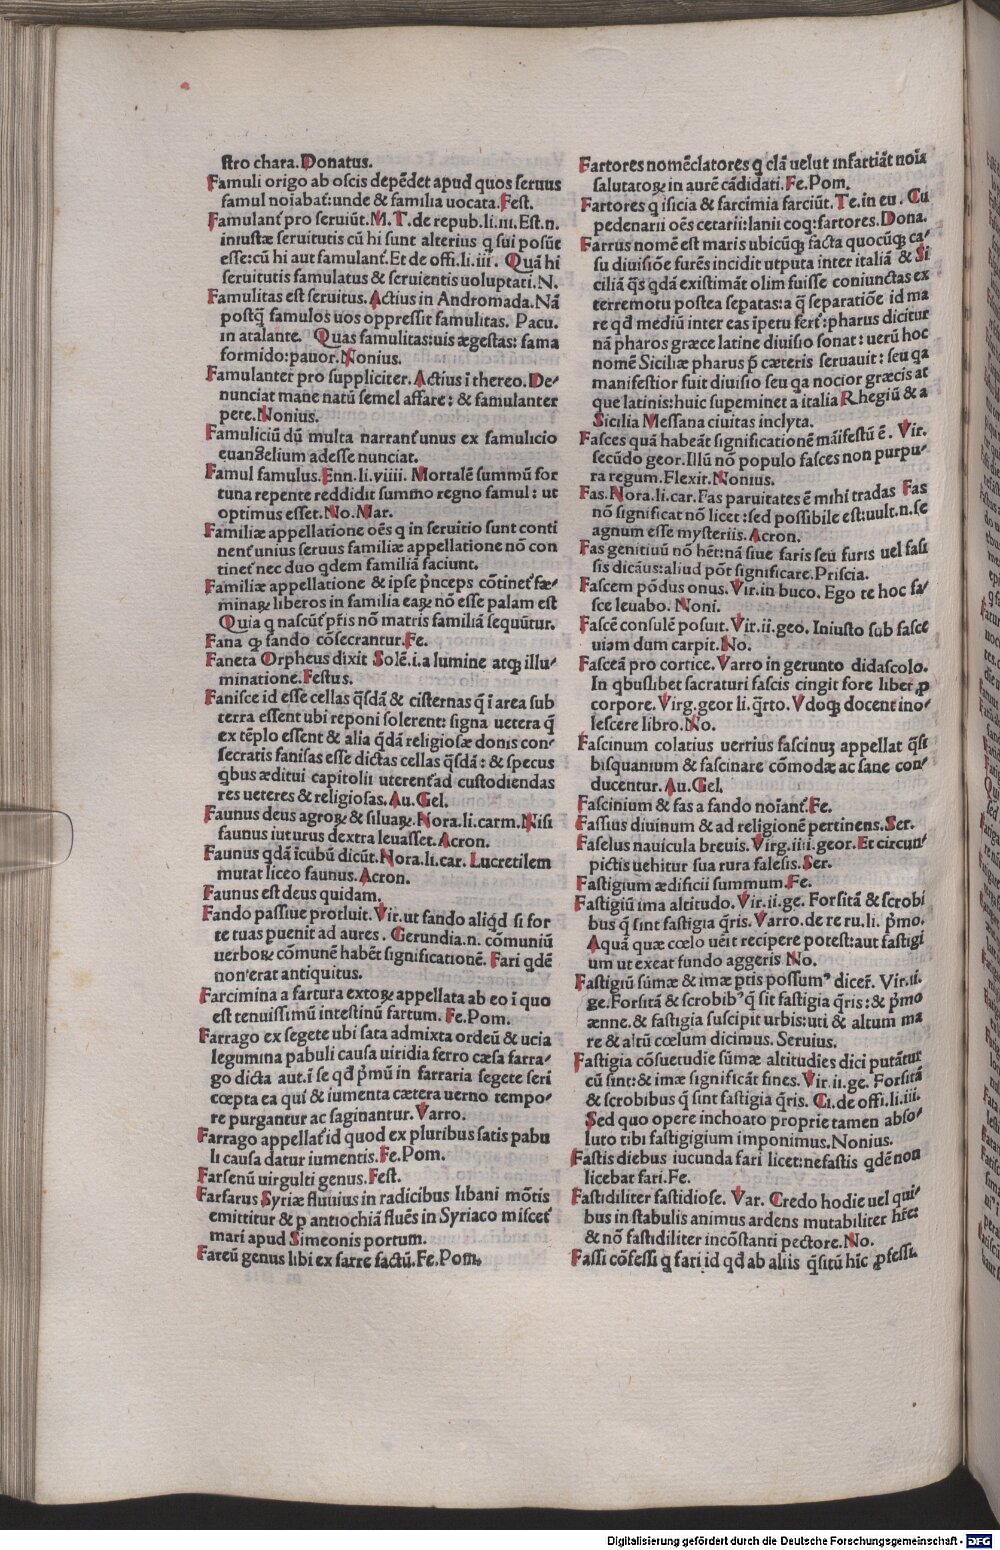 stro chara. Donatus.
Famuli origo ab oscis depēdet apud quos seruus
famul noīabat᷑: unde & familia uocata. Fest.
Famulant᷑ pro seruiūt. M. T. de repub. li. iii. Est. n.
iniustæ seruitutis cū hi sunt alterius q sui posūt
esse: cū hi aut famulant᷑. Et de offi. li. iii. Quā hi
seruitutis famulatus & seruientis uoluptati. N.
Famulitas est seruitus. Actius in Andromada. Nā
postq̄ famulos uos oppressit famulitas. Pacu.
in atalante. Quas famulitas: uis ægestas: fama
formido: pauor. Nonius.
Famulanter pro suppliciter. Actius ī thereo. De⸗
nunciat mane natū semel affare: & famulanter
pete. Nonius.
Famuliciū dū multa narrant᷑ unus ex famulicio
euangelium adesse nunciat.
Famul famulus. Enn. li. viiii. Mortalē summū for
tuna repente reddidit summo regno famul: ut
optimus esset. No. Mar.
Familiæ appellatione oēs q in seruitio sunt conti
nent᷑ unius seruus familiæ appellatione nō con
tinet᷑ nec duo qdem familiā faciunt.
Familiæ appellatione & ipse p̄nceps cōtinet᷑ fæ⸗
minaꝝ liberos in familia eaꝝ nō esse palam est
Quia q nascūt᷑ pr̄is nō matris familiā sequūtur.
Fana ꝙ fando cōsecrantur. Fe.
Faneta Orpheus dixit Solē. i. a lumine atqꝫ illu⸗
minatione. Festus.
Fanisce id esse cellas q̄sdā & cisternas q̄ ī area sub
terra essent ubi reponi solerent: signa uetera q̄
ex tēplo essent & alia q̄dā religiosæ donis con⸗
secratis fanisas esse dictas cellas q̄sdā: & specus
qbus æditui capitolii uterent᷑ ad custodiendas
res ueteres & religiosas. Au. Gel.
Faunus deus agroꝝ & siluaꝝ. Nora. li. carm. Nisi
faunus iuturus dextra leuasset. Acron.
Faunus qdā īcubū dicūt. Nora. li. car. Lucretilem
mutat liceo faunus. Acron.
Faunus est deus quidam.
Fando passiue protluit. Vir. ut fando aliqd si for
te tuas puenit ad aures. Gerundia. n. cōmuniū
uerboꝝ cōmunē habēt significationē. Fari qdē
non erat antiquitus.
Farcimina a fartura extoꝝ appellata ab eo ī quo
est tenuissimū intestinū fartum. Fe. Pom.
Farrago ex segete ubi sata admixta ordeū & uicia
legumina pabuli causa uiridia ferro cæsa farra⸗
go dicta aut. ī se qd p̄mū in farraria segete seri
cœpta ea qui & iumenta cætera uerno tempo⸗
re purgantur ac saginantur. Varro.
Farrago appellat᷑ id quod ex pluribus satis pabu
li causa datur iumentis. Fe. Pom.
Farsenū uirgulti genus. Fest.
Farfarus Syriæ fluuius in radicibus libani mōtis
emittitur & p antiochiā fluēs in Syriaco miscet᷑
mari apud Simeonis portum.
Fareū genus libi ex farre factū. Fe. Pom.
Fartores nomēclatores q clā uelut infartiāt noīa
salutatoꝝ in aurē cādidati. Fe. Pom.
Fartores q isicia & farcimia farciūt. Te. in eu. Cu
pedenarii oēs cetarii: lanii coq: fartores. Dona.
Farrus nomē est maris ubicūqꝫ facta quocūqꝫ ca⸗
su diuisiōe furēs incidit utputa inter italiā & Si
ciliā q̄s qdā existimāt olim fuisse coniunctas ex
terremotu postea sepatas: a q̄ separatiōe id ma
re qd mediū inter eas īpetu fert᷑: pharus dicitur
nā pharos græce latine diuisio sonat: uerū hoc
nomē Siciliæ pharus p̄ cæteris seruauit: seu qa
manifestior fuit diuisio seu qa nocior græcis at
que latinis: huic supeminet a italia Rhegiū & a
Sicilia Messana ciuitas inclyta.
Fasces quā habeāt significationē māifestū ē. Vir.
secūdo geor. Illū nō populo fasces non purpu⸗
ra regum. Flexit. Nonius.
Fas. Nora. li. car. Fas paruitates ē mihi tradas Fas
nō significat nō licet: sed possibile est: uult. n. se
agnum esse mysteriis. Acron.
Fas genitiuū nō hēt: nā siue faris seu furis uel fasi
sis dicāus: aliud pōt significare. Priscia.
Fascem pōdus onus. Vir. in buco. Ego te hoc fa⸗
sce leuabo. Noni.
Fascē consulē posuit. Vir. ii. geo. Iniusto sub fasce
uiam dum carpit. No.
Fasceā pro cortice. Varro in gerunto didascolo.
In qbuslibet sacraturi fascis cingit fore liber ꝓ
corpore. Virg. geor li. q̄rto. Vdoqꝫ docent ino⸗
lescere libro. No.
Fascinum colatius uerrius fascinuꝫ appellat q̄si
bisquanium & fascinare cōmodæ ac sane con⸗
ducentur. Au. Gel.
Fascinium & fas a fando noīant᷑. Fe.
Fassius diuinum & ad religionē pertinens. Ser.
Faselus nauicula breuis. Virg. iiii. geor. Et circun⸗
pictis uehitur sua rura falesis. Ser.
Fastigium ædificii summum. Fe.
Fastigiū ima altitudo. Vir. ii. ge. Forsitā & scrobi
bus q̄ sint fastigia q̄ris. Varro. de re ru. li. p̄mo.
Aquā quæ cœlo uēit recipere potest: aut fastigi
um ut exeat fundo aggeris No.
Fastigiū sūmæ & imæ ptis possumꝰ dicer̄. Vir. ii.
ge. Forsitā & scrobibꝰ q̄ sit fastigia q̄ris: & p̄mo
ænne. & fastigia suscipit urbis: uti & altum ma
re & altū cœlum dicimus. Seruius.
Fastigia cōsuetudie sūmæ altitudies dici putātur
cū sint: & imæ significāt fines. Vir. ii. ge. Forsitā
& scrobibus q̄ sint fastigia q̄ris. Ci. de offi. li. iii.
Sed quo opere inchoato proprie tamen abso⸗
luto tibi fastigigium imponimus. Nonius.
Fastis diebus iucunda fari licet: nefastis qdē non
licebat fari. Fe.
Fastidiliter fastidiose. Var. Credo hodie uel qui⸗
bus in stabulis animus ardens mutabiliter hr̄et
& nō fastidiliter incōstanti pectore. No.
Fassi cōfessi q fari id qd ab aliis q̄situ hīc ꝓfessi.
Digitalisierung gefördert durch die Deutsche Forschungsgemeinschaft - DFG